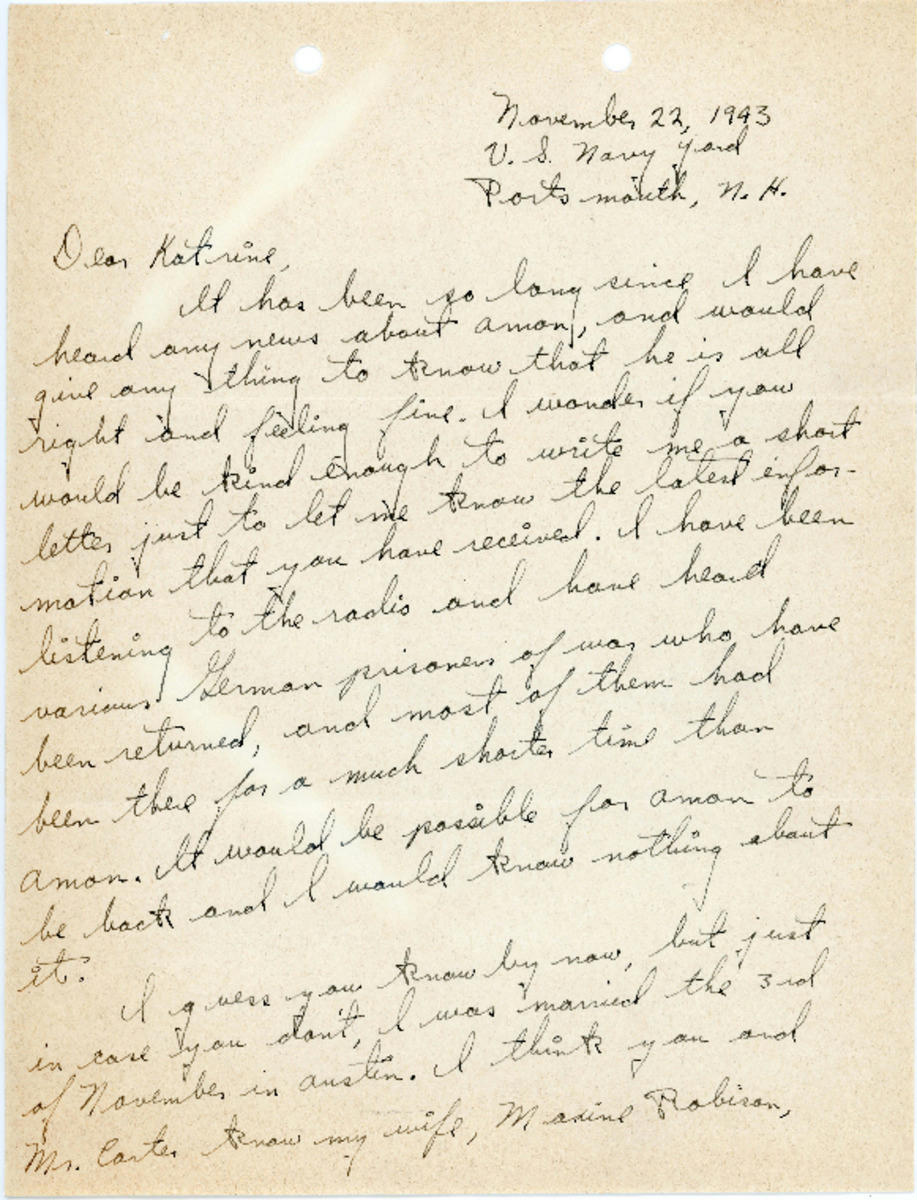 November 22, 1943
U. S. Navy Yard
Portsmouth, N. H.
Dear Katrine,
It has been so long since I have
heard any news about Amon, and would
give any thing to know that he is all
right and feeling fine. I wonder if you
would be kind enough to write me a short
letter just to let me know the latest infor-
mation that you have received. I have been
listening to the radio and have heard
various German prisoners of war who have
been returned, and most of them had
been there for a much shorter time than
Amon. It would be possible for Amon to
be back and I would know nothing about
it.
I guess you know by now, but just
in case you don't, I was married the 3rd
of November in Austin. I think you and
Mr. Carter know my wife, Maxine Robison,